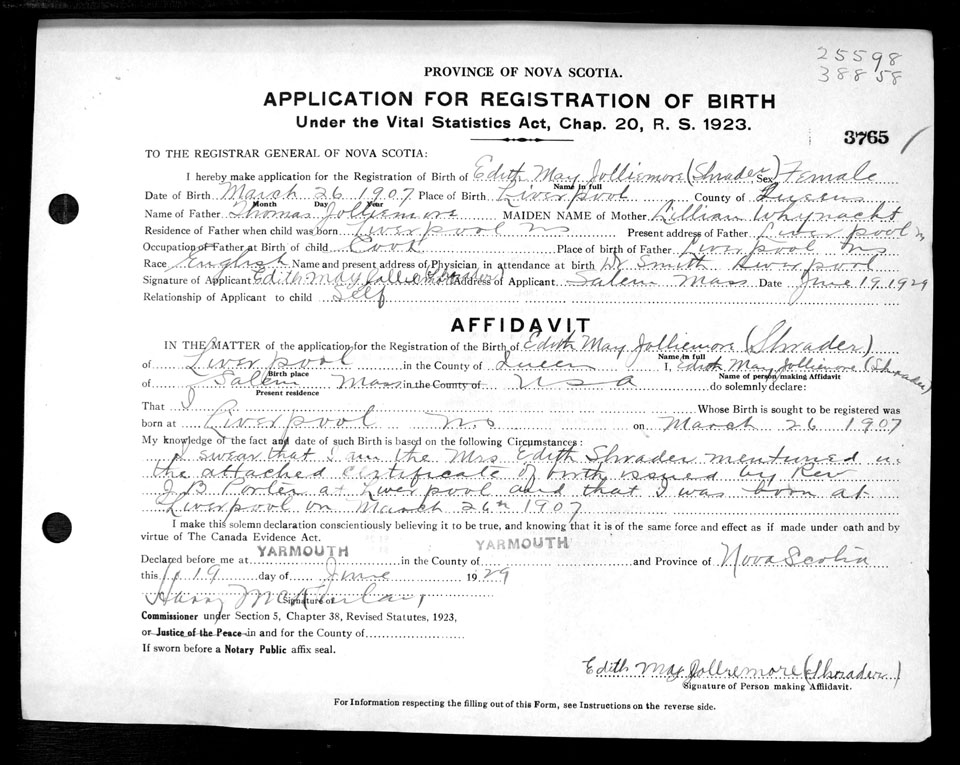 25598
38858
PROVINCE OF NOVA SCOTIA.
APPLICATION FOR REGISTRATION OF BIRTH
Under the Vital Statistics Act, Chap. 20, R. S. 1923.
3765
TO THE REGISTRAR GENERAL OF NOVA SCOTIA:
I hereby make application for the Registration of Birth of Edith May Jolliemore (Shrader) Sex Female
Name in full
Date of Birth March 26 1907 Place of Birth Liverpool County of Queens
Month Day Year
Name of Father Thomas Jolliemore MAIDEN NAME of Mother Lillian Whynacht
Residence of Father when child was born Liverpool NS Present address of Father Liverpool NS
Occupation of Father at Birth of child Cook Place of birth of Father Liverpool NS
Race English Name and present address of Physician in attendance at birth Dr Smith Liverpool
Signature of Applicant Edith May Jolliemore (Shrader) Address of Applicant Salem Mass Date June 19 1929
Relationship of Applicant to child Self
AFFIDAVIT
IN THE MATTER of the application for the Registration of the Birth of Edith May Jolliemore (Shrader)
Name in full
of Liverpool in the County of Queen I, Edith May Jolliemore (Shrader)
Birth place Name of person making Affidavit
of Salem Mass in the County of USA do solemnly declare:
Present residence
That I Whose Birth is sought to be registered was
born at Liverpool NS on March 26 1907
My knowledge of the fact and date of such Birth is based on the following Circumstances:
I swear that I am the Mrs Edith Shrader mentioned in
the attached certificate of birth issued by Rev
J B Porter at Liverpool and that I was born at
Liverpool on March 26th 1907
I make this solemn declaration conscientiously believing it to be true, and knowing that it is of the same force and effect as if made under oath and by
virtue of The Canada Evidence Act.
Declared before me at YARMOUTH in the County of YARMOUTH and Province of Nova Scotia
this 19 day of June 1929
Harry
Signature of
Commissioner under Section 5, Chapter 38, Revised Statutes, 1923,
or Justice of the Peace in and for the County of
If sworn before a Notary Public affix seal.
Edith May Jolliemore (Shrader)
Signature of Person making Affidavit.
For Information respecting the filling out of this Form, see Instructions on the reverse side.